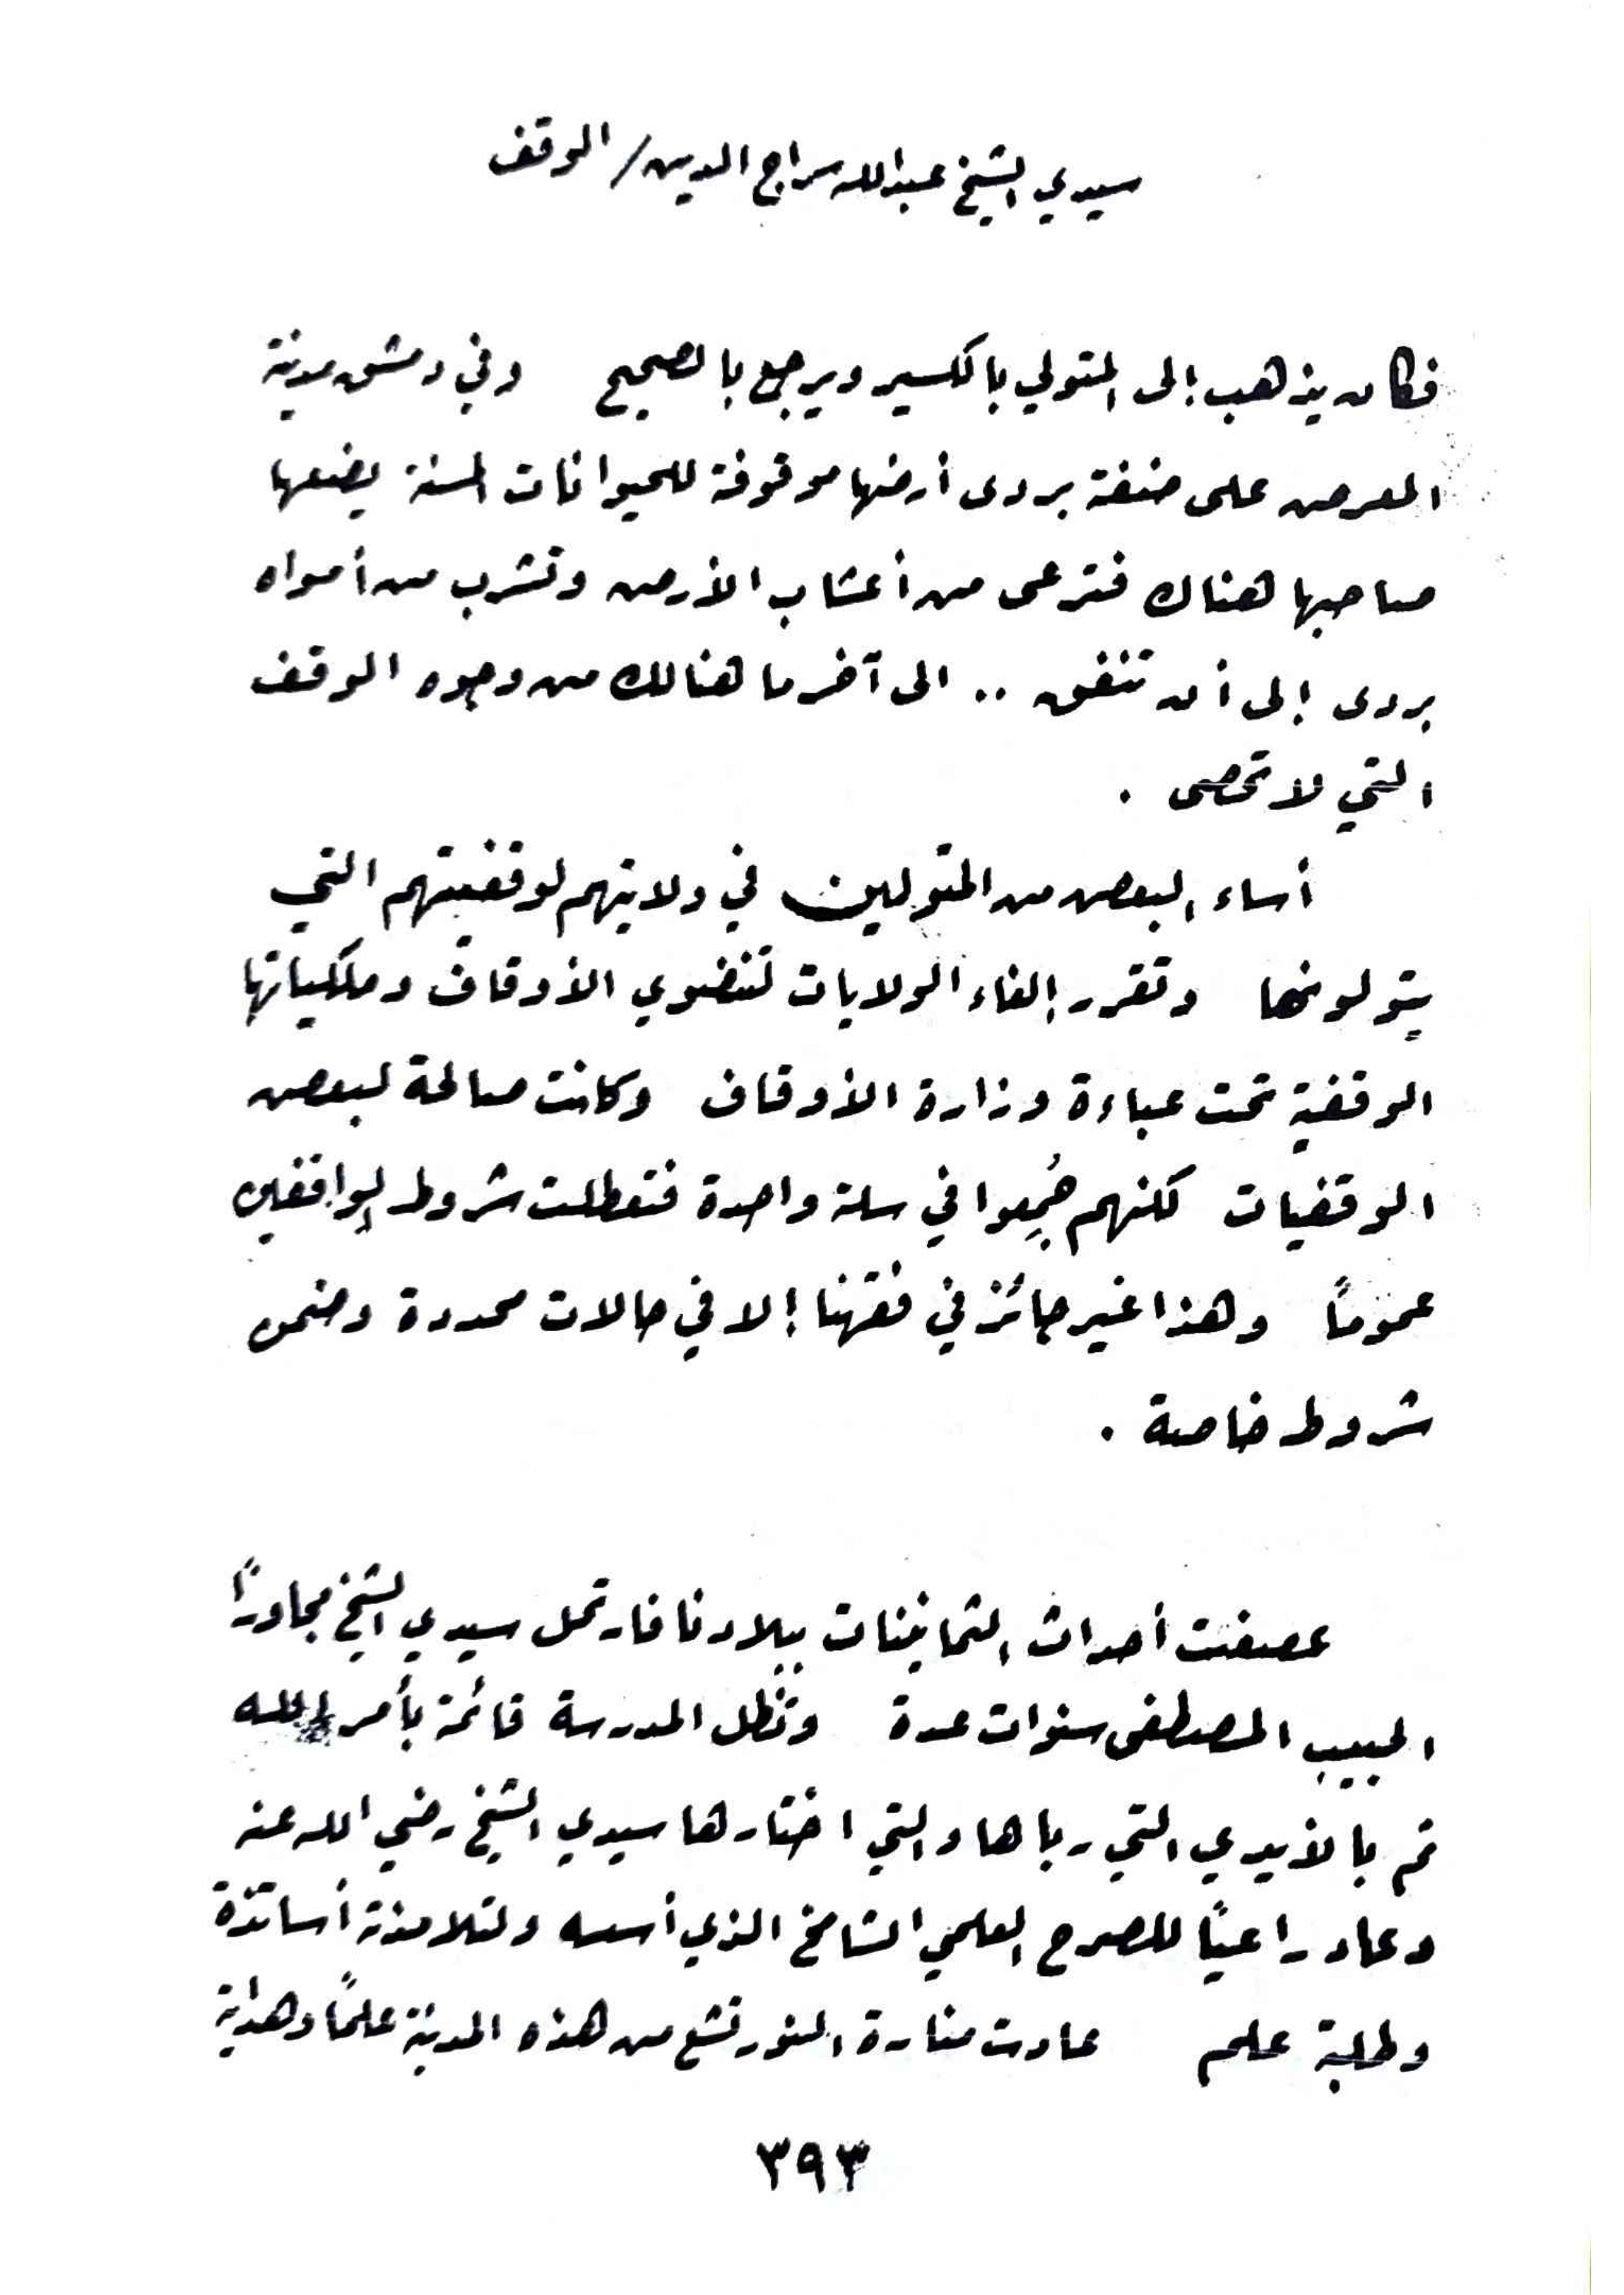 سيدي الشيخ عبدالله سراج الدين / الوقف
فكان يذهب إلى المتولي بالكسير ويرجع بالصحيح وفي دمشق مدينة
المعرض على ضفة بردى أرضها موقوفة للحيوانات المسنة يضعها
صاحبها هناك فترعى من أعشاب الأرض وتشرب من أمواه
بردى إلى أن تنفق .. الى آخر ما هنالك من وجوه الوقف
التي لا تحصى .
أساء البعض من المتولين في ولايتهم لوقفيتهم التي
يتولونها وتقرر إلغاء الولايات لتنضوي الأوقاف وملكياتها
الوقفية تحت عباءة وزارة الأوقاف وكانت صالحة لبعض
الوقفيات لكنهم جُمِعوا في سلة واحدة فتعطلت شروط الواقفين
عموماً وهذا غير جائز في فقهنا إلا في حالات محددة وضمن
شروط خاصة .
عصفت أحداث الثمانينات ببلادنا فارتحل سيدي الشيخ مجاوراً
الحبيب المصطفى سنوات عدة وتظل المدرسة قائمة بأمر الله
ثم بالأيدي التي رباها والتي اختارها سيدي الشيخ رضي الله عنه
وعاد راعياً للصرح العلمي الشامخ الذي أسسه ولتلامذته أساتذة
وطلبة علم عادت منارة النور تشع من هذه المدينة علماً وهداية
٣٩٣